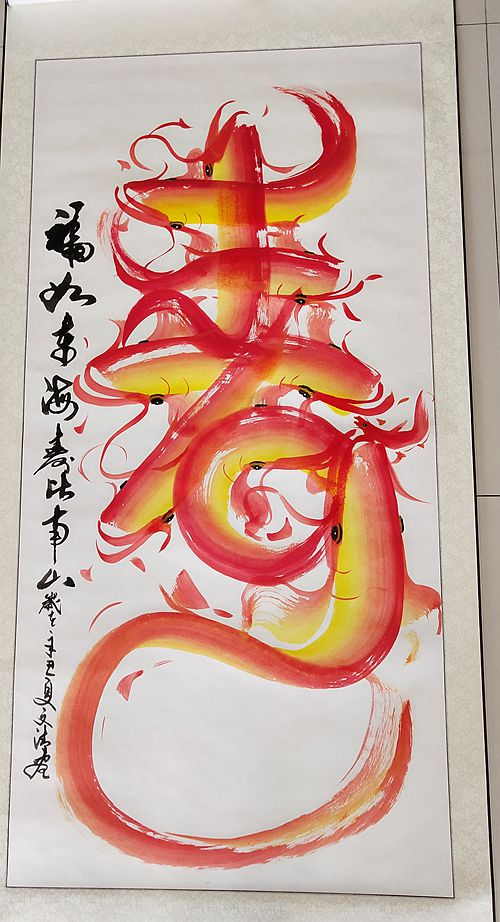 寿
福如东海寿比南山
岁在辛丑夏文清画